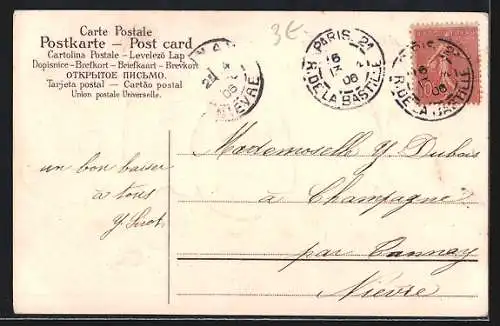 Carte Postale
Postkarte — Post card
Cartolina Postale — Levelező Lap
Dopisnice - Brefkort - Briefkaart - Brevkort
ОТКРЫТОЕ ПИСЬМО.
Tarjeta postal — Cartão postal
Union postale Universelle.
3€
NIÈVRE
06
PARIS. 21
R. DE LA BASTILLE
16
06
PARIS. 21
R. DE LA BASTILLE
06
10
un bon baiser
à tous
Y.
Mademoiselle Y Dubois
à Champagne
par Tannay
Nièvre